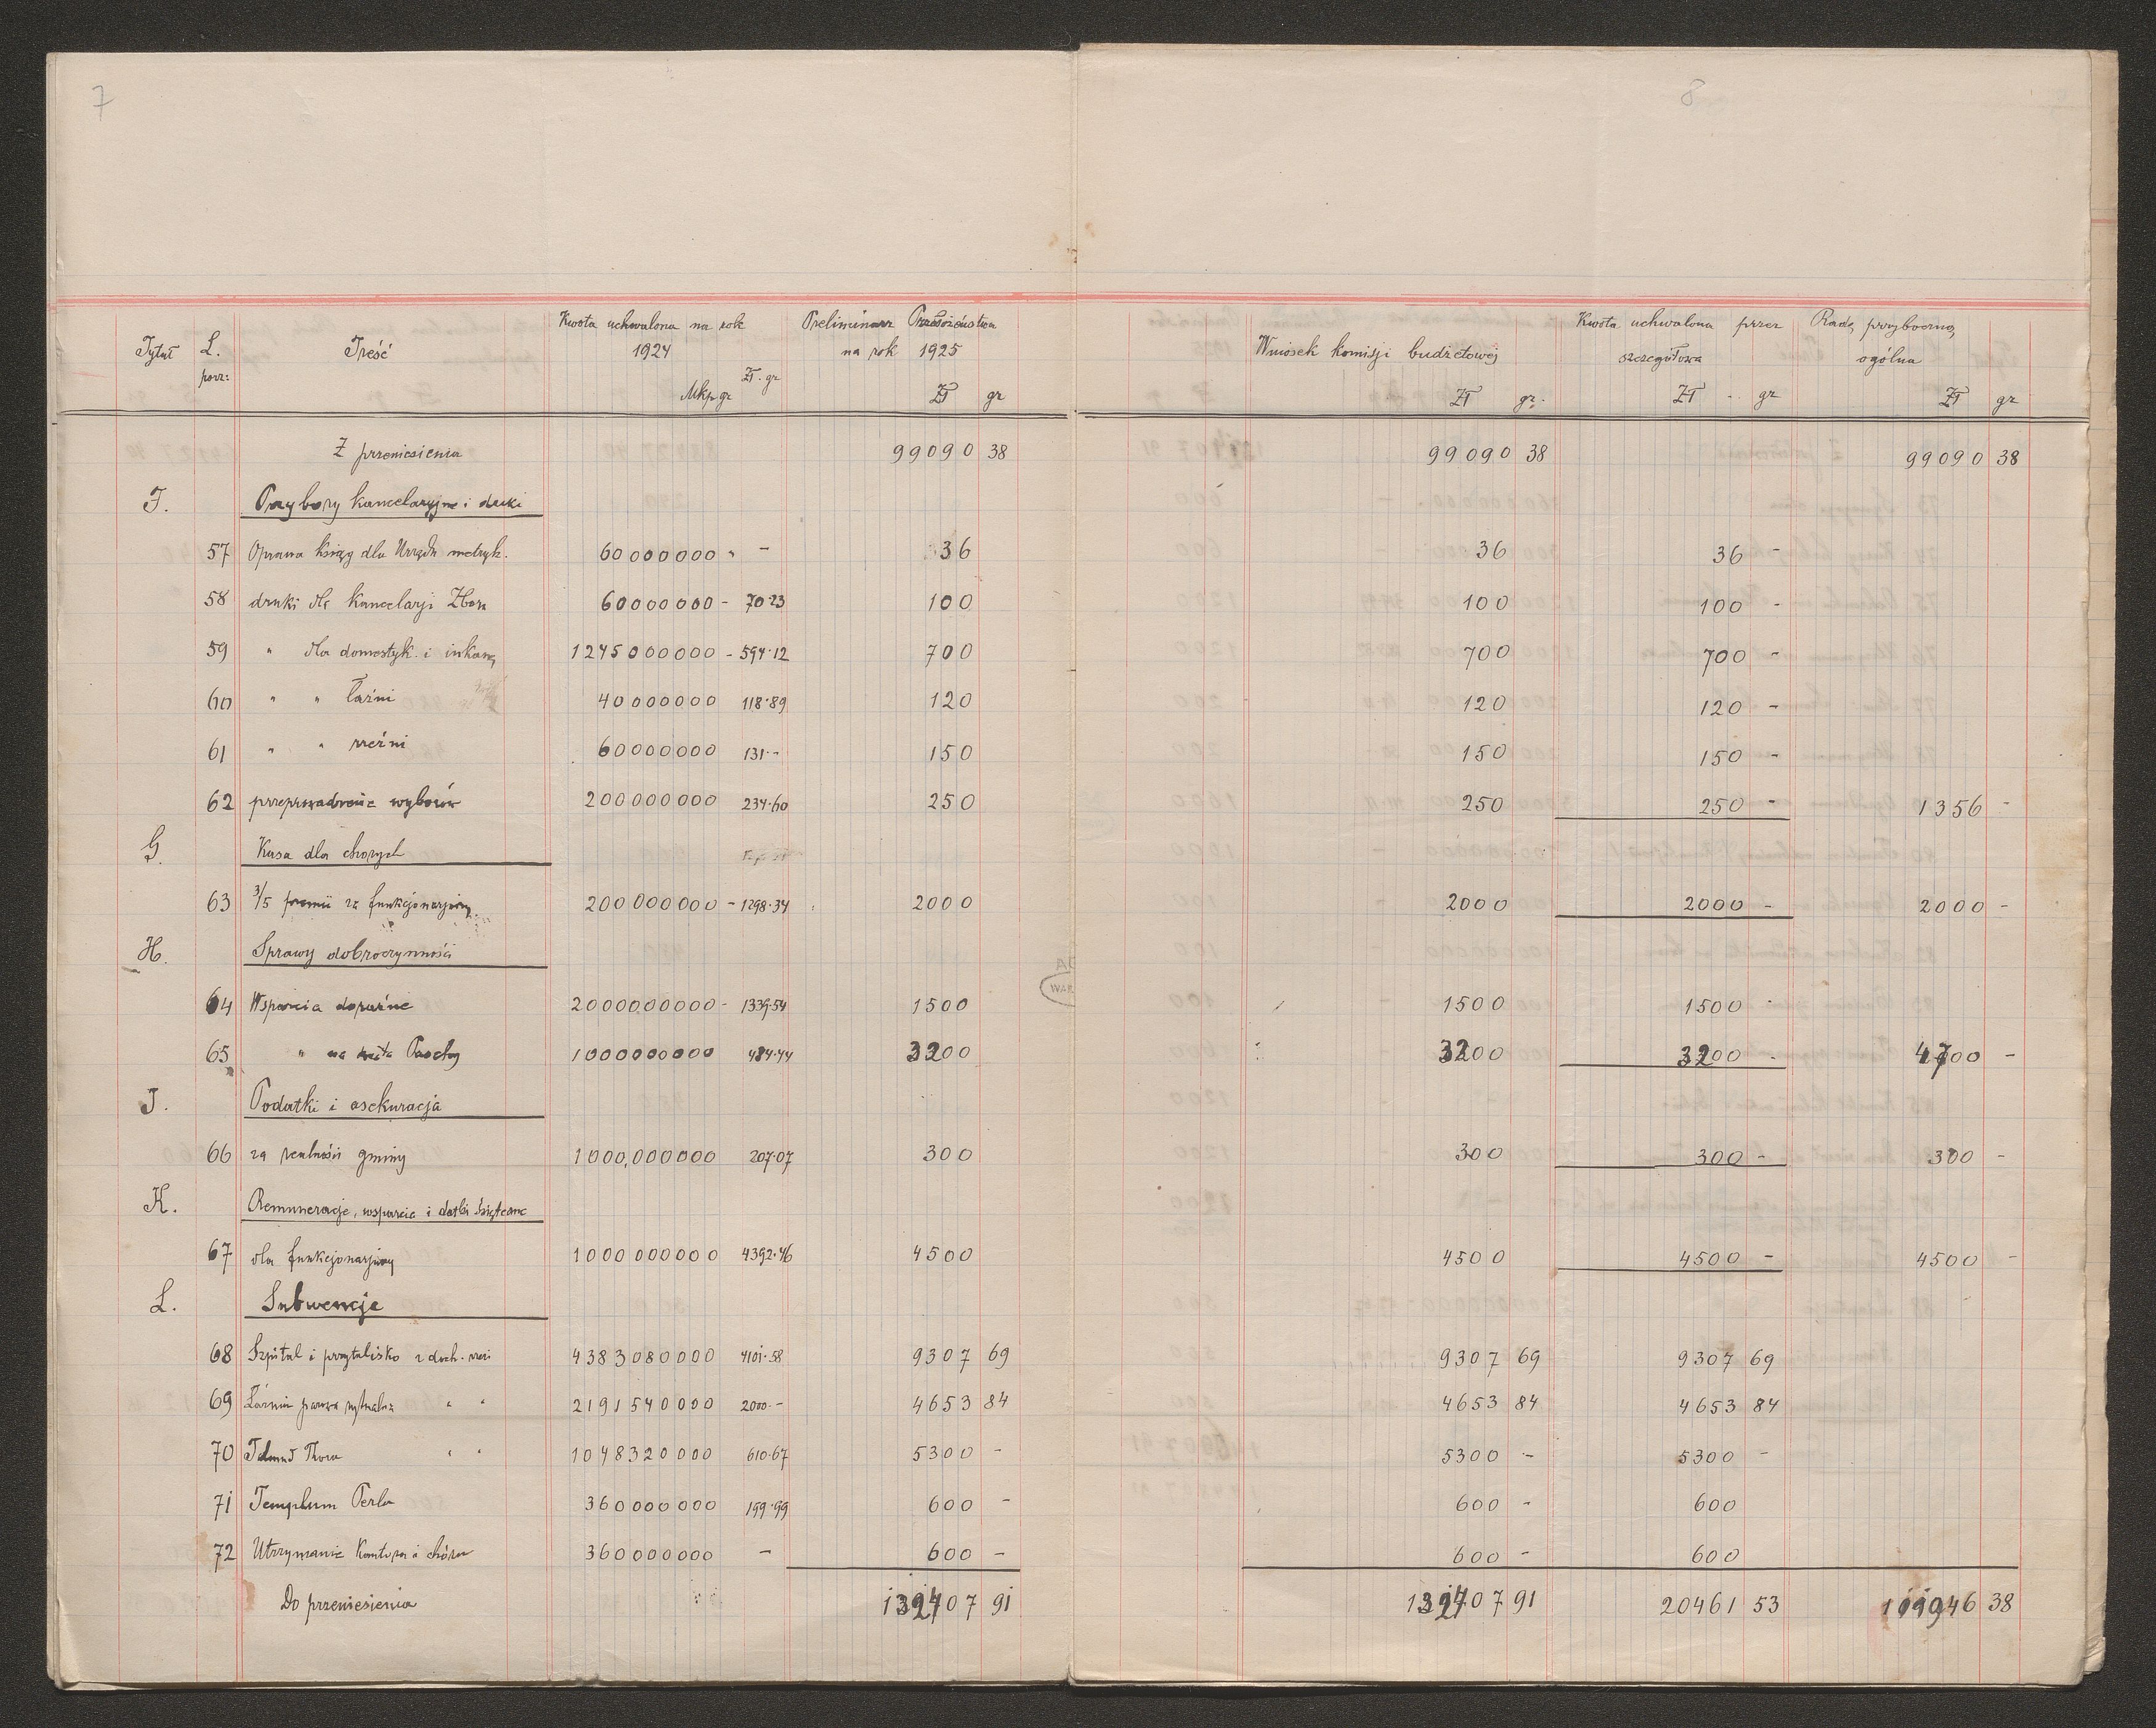 7
8
Tytuł L. porz: Treść Kwota uchwalona na rok 1924 Mkp gr Zł. gr Preliminarz Przełożeństwa na rok 1925 Zł gr Wniosek komisji budżetowej Zł gr. Kwota uchwalona przez Radę przyboczną szczegółowa Zł gr ogólna Zł gr
Z przeniesienia 99090 38 99090 38 99090 38
F. Przybory kancelaryjne i druki
57 Oprawa ksiąg dla Urzędu metryk. 60000000 - - 36 36 36 -
58 druki dla Kancelarji Zboru 60000000 - 70.23 100 100 100 -
59 " dla domestyk. i inkaso 1245000000 - 594.12 700 700 700 -
60 " " łaźni 40000000 118.89 120 120 120 -
61 " " rzeźni 60000000 131.- 150 150 150 -
62 przeprowadzenie wyborów 200000000 234.60 250 250 250 - 1356 -
G. Kasa dla chorych
63 3/5 premii za funkcjonarjuszy 200000000 - 1298.34 2000 2000 2000 - 2000 -
H. Sprawy dobroczynności
64 Wsparcia doraźne 2000000000 - 1339.54 1500 1500 1500 -
65 " na święta Paschy 1000000000 484.44 3200 3200 3200 - 4700 -
J. Podatki i asekuracja
66 za realności gminy 1000,000000 207.07 300 300 300 - 300 -
K. Remuneracje, wsparcia i datki świąteczne
67 dla funkcjonarjuszy 1000000000 4392.46 4500 4500 4500 - 4500 -
L. Subwencje
68 Szpital i przytulisko z doch. rzezi 4383080000 4101.58 9307 69 9307 69 9307 69
69 Łaźnia parowa rytualna " " 2191540000 2000.- 4653 84 4653 84 4653 84
70 Talmud Thora " " 1048320000 610.67 5300 - 5300 - 5300 -
71 Templum Perla 360000000 199.99 600 - 600 - 600
72 Utrzymanie Kantora i chóru 360000000 - 600 - 600 - 600
Do przeniesienia 132407 91 132407 91 20461 53 111946 38